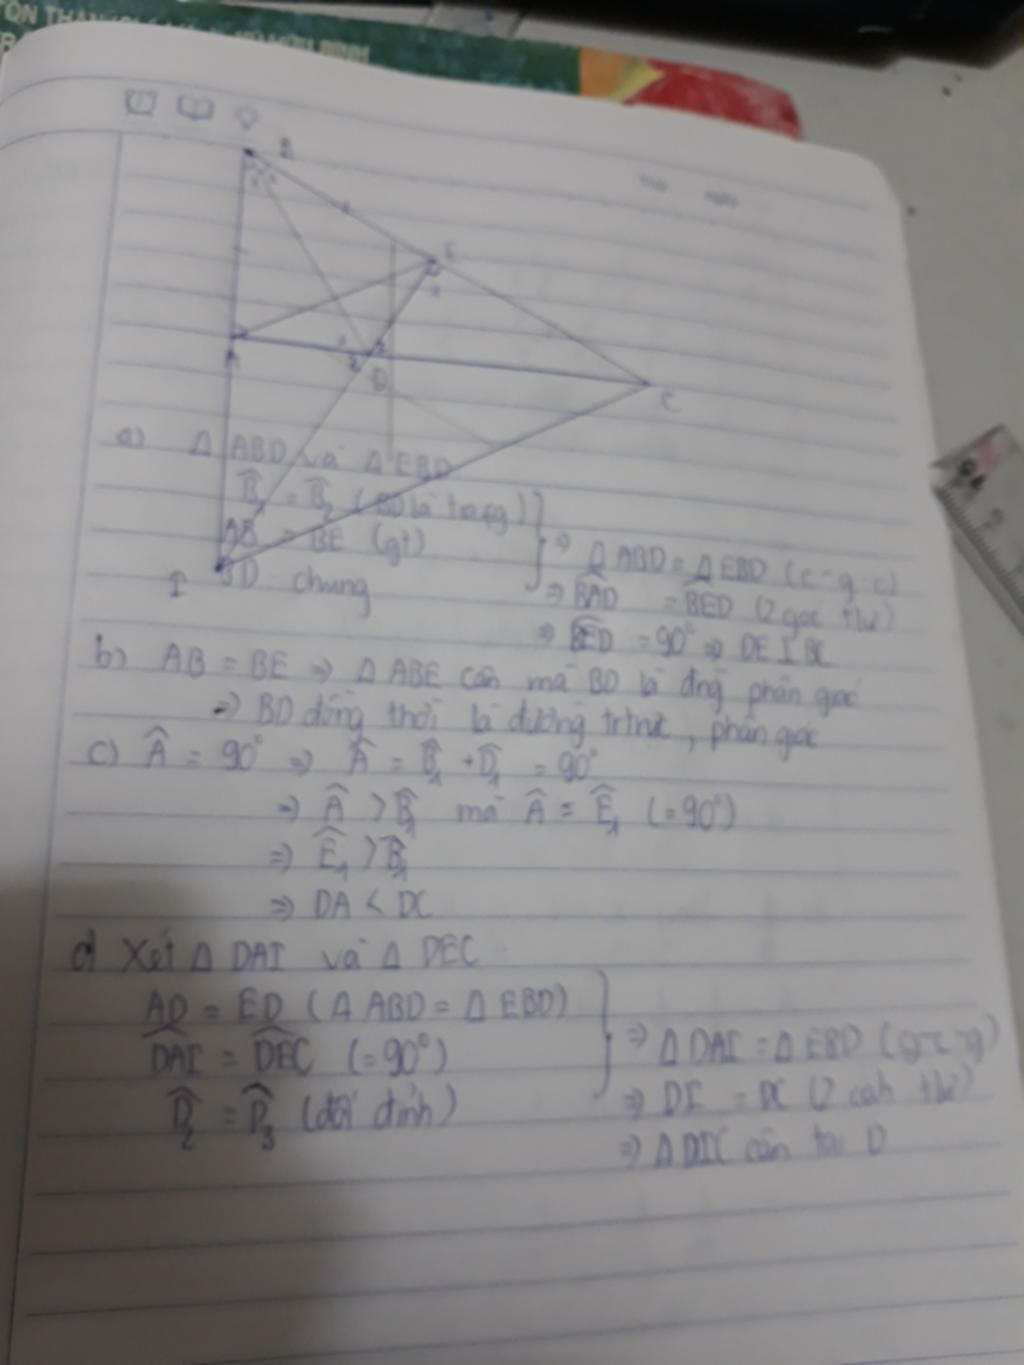 B
E
A
D
C
I
a) Δ ABD và Δ EBD
B̂₁ = B̂₂ (BD là tia pg)
AB = BE (gt)
BD chung
⇒ Δ ABD = Δ EBD (c-g-c)
⇒ BAD = BED (2 góc t/ư)
⇒ BED = 90° ⇒ DE ⊥ BC
b) AB = BE ⇒ Δ ABE cân mà BD là đng phân giác
⇒ BD đồng thời là đường tr trực, phân giác
c) Â = 90° ⇒ Â = B̂₁ + D̂₁ = 90°
⇒ Â > B̂₁ mà Â = Ê₁ (=90°)
⇒ Ê₁ > B̂₁
⇒ DA < DC
d) Xét Δ DAI và Δ DEC
AD = ED (Δ ABD = Δ EBD)
DAI = DEC (=90°)
D̂₂ = D̂₃ (đối đỉnh)
⇒ Δ DAI = Δ EBD (g-c-g)
⇒ DI = DC (2 cạh t/ư)
⇒ Δ DIC cân tại D